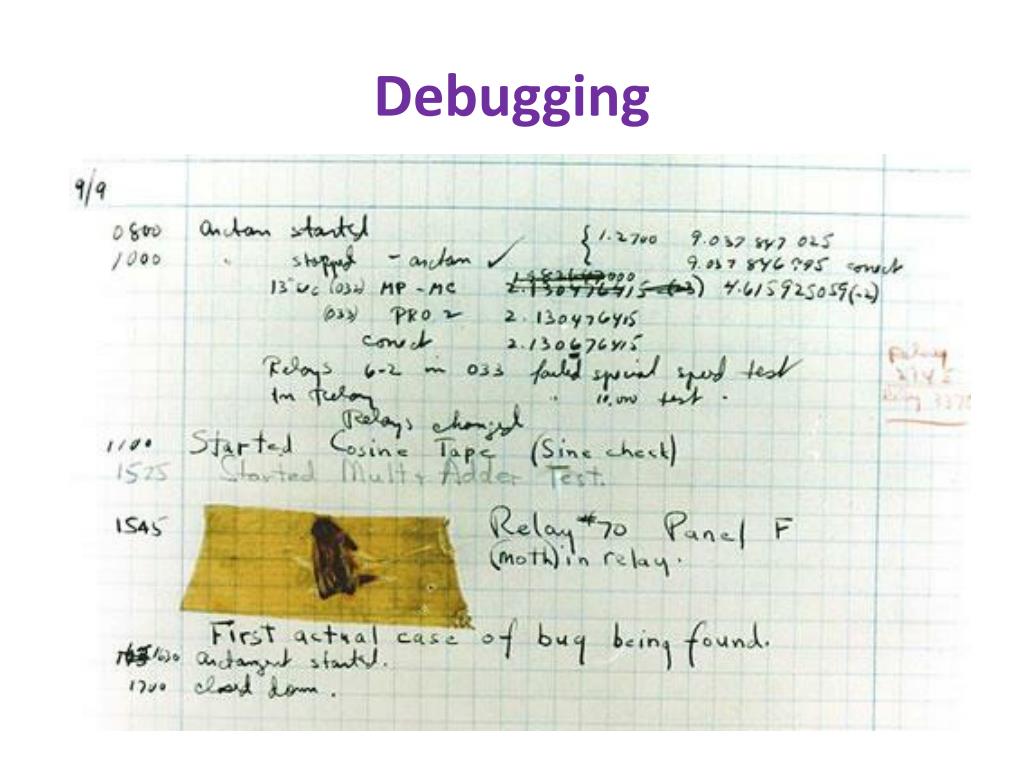 Debugging
9/9
0800 Antan started { 1.2700 9.037 847 025
1000 " stopped - antan ✓ 9.037 846 995 conect
13"uc (032) MP - MC 2.130476415 (-3) 4.615925059(-2)
(033) PRO 2 2.130476415
conect 2.130676415
Relays 6-2 in 033 failed special speed test
In Relay " 10,000 test .
Relays changed
1100 Started Cosine Tape (Sine check)
1525 Started Mult + Adder Test.
1545 Relay #70 Panel F
(moth) in relay.
First actual case of bug being found.
1630 antangent started.
1700 closed down.
Relay
2145
Relay 3370